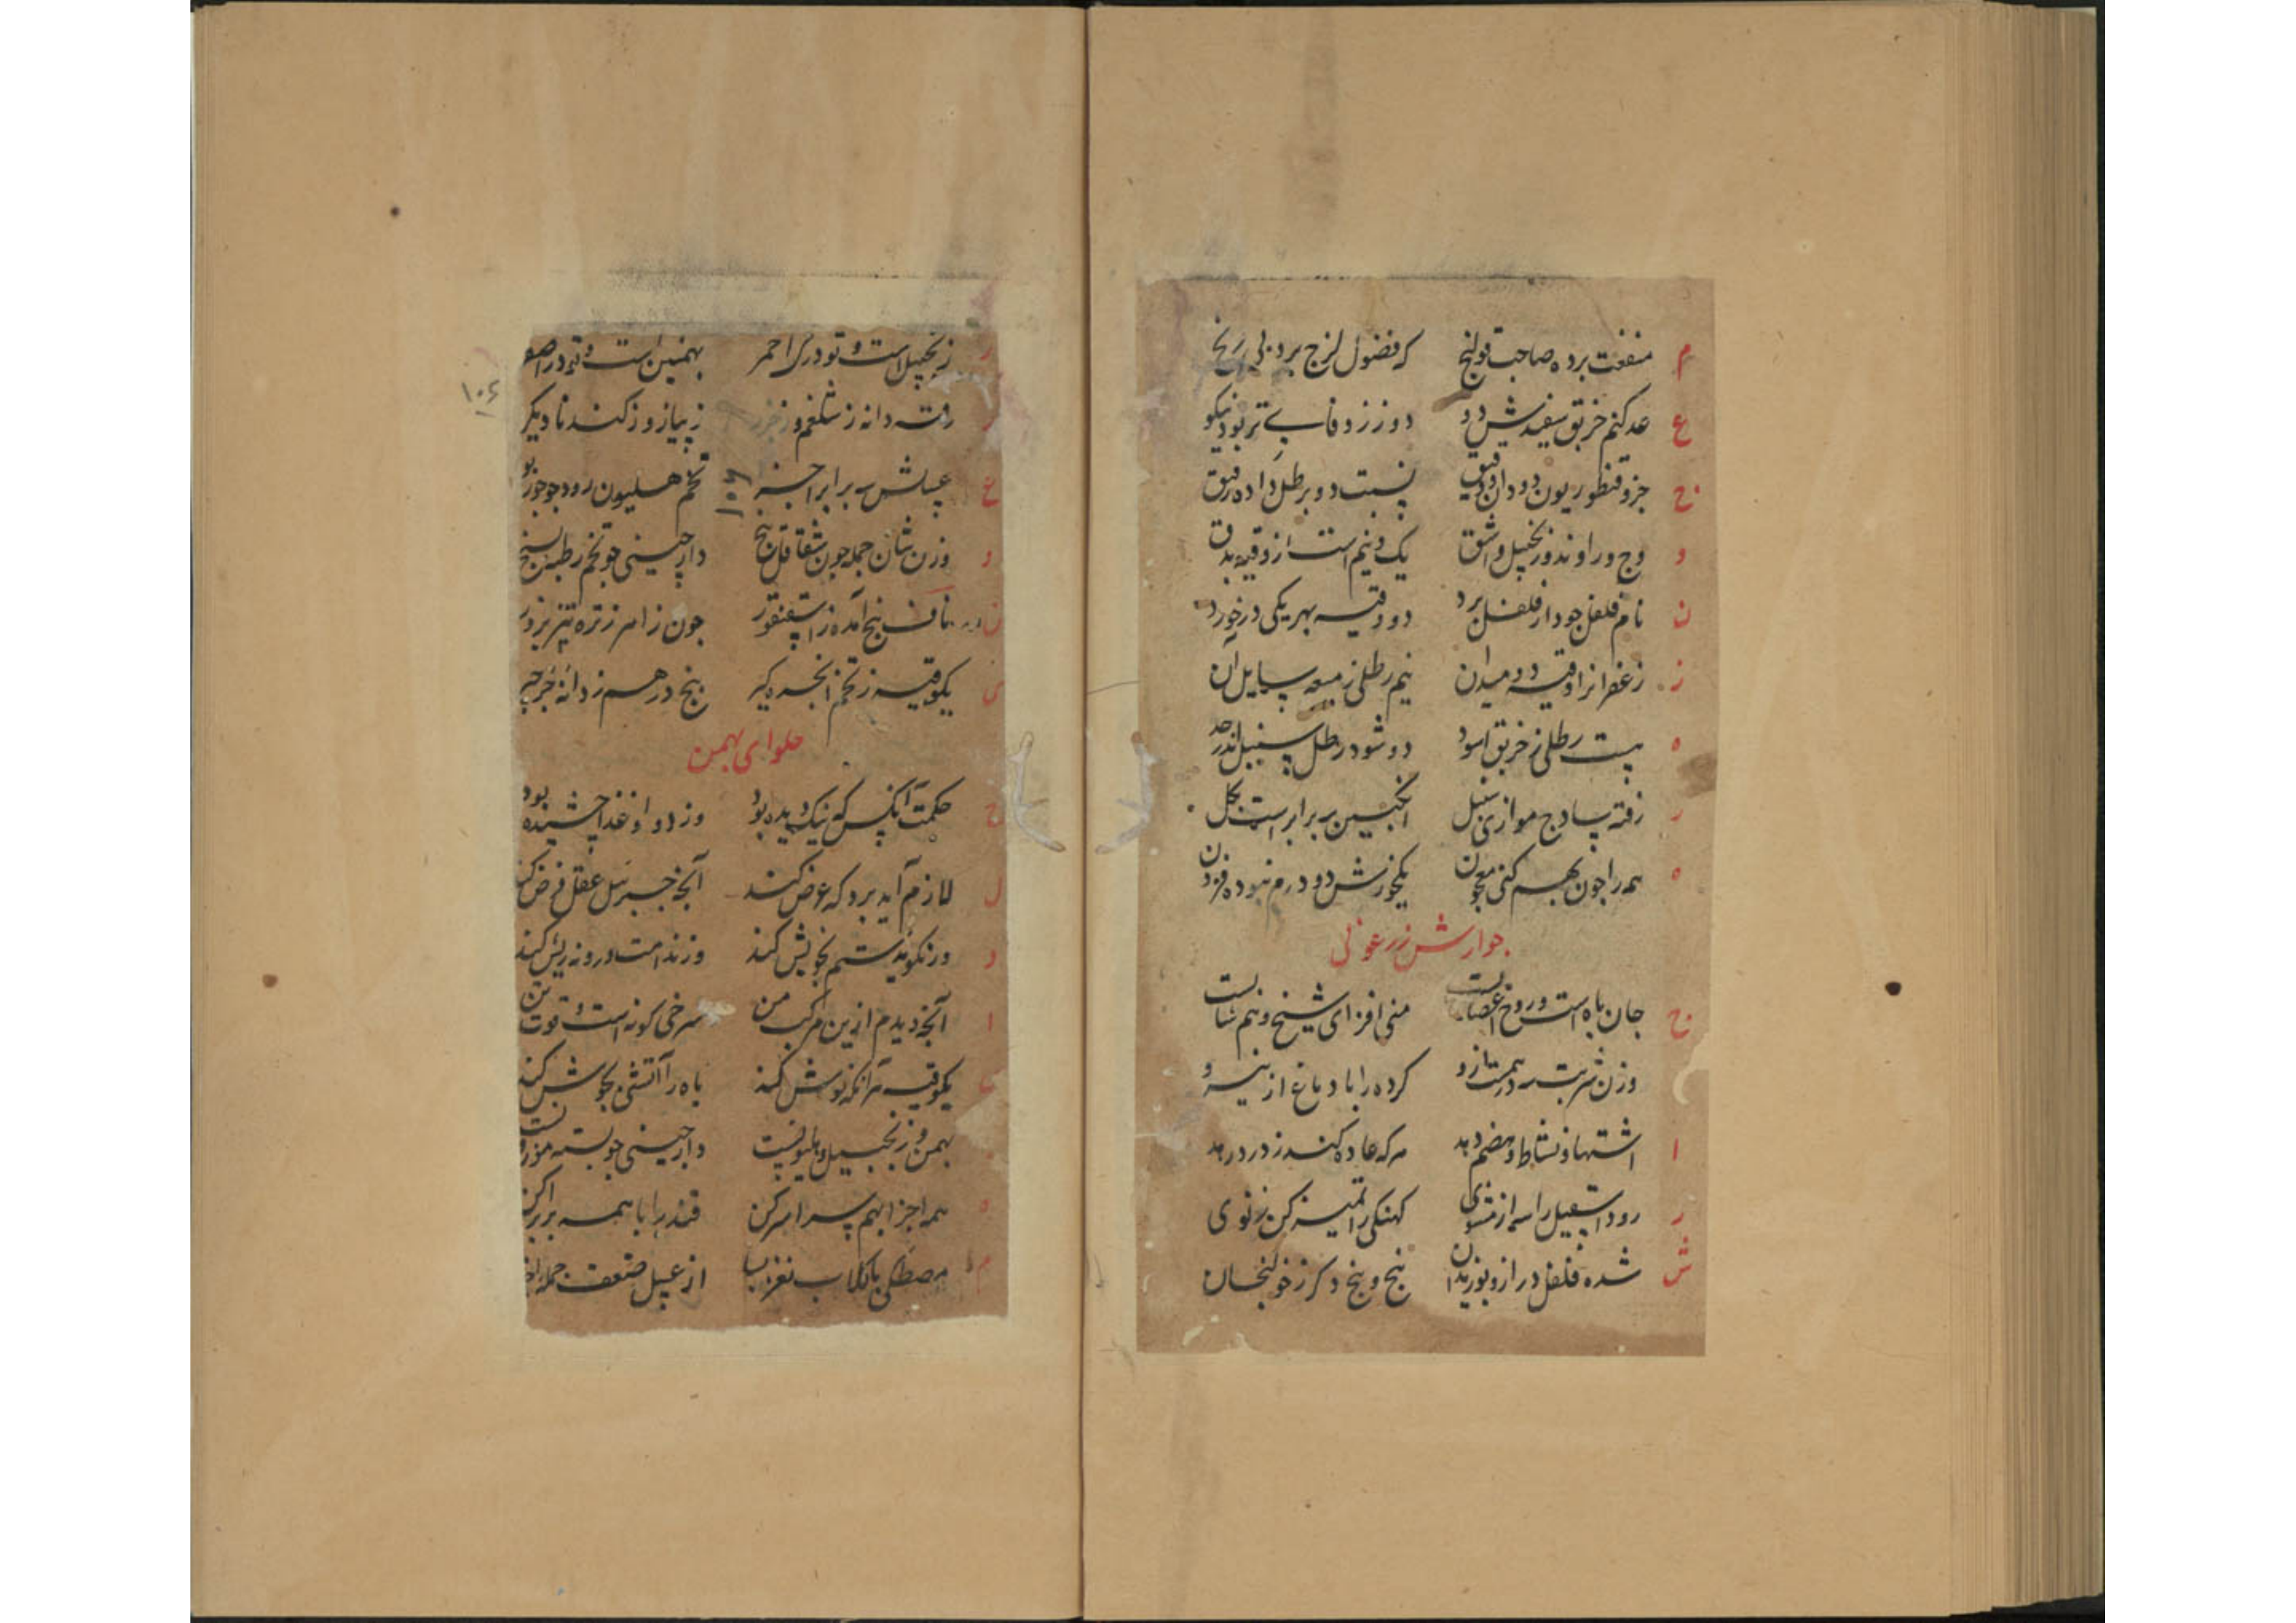 م منفعت برده صاحب قولنج که فضول لزج برد بی رنج
ع عد کنم خربق سفید ش دو دو ز زوفا بی تر بود نیکو
ج جزو قنطوریون دو دان نسبت دو بر طل داده رفیق
و وج و راوند و زنجبیل و اشق یک و نیم است از وقیه بدق
ن نام فلفل جو دار فلفل برد دو وقیه بهر یکی درخورد
ز زعفرانرا وقیه دو میدان نیم رطلی ز میعه سایل ان
ه بیست رطلی ز خربق اسود دو شود رطل سنبل اندر حد
ر رفته سادج موازی سنبل انکبین برابر است بکل
ه همه را جون بهم کنی معجون یکخورش دو درم نبوده فزون
جوارش زرعونی
ج جان باه است و روح اعصابست منی افزای شیخ و هم شابست
وزن شربت درهمست از و کرده را با دماغ از نیرو
ا اشتها و نشاط و هضم دهد هرکه عاده کند ز درد رهد
ر رود اسعیل را کهنکی را تمیز کن ز نوی
ش شده فلفل دراز و بوزیدان پنج و پنج دکر ز خولنجان
ز زنجبیل است و تودری احمر بهمنین است و تودر اصفر
ر رفته دانه ز شلغم و ز پیاز و ز کندنا دیکر
۱۰۶
ع عسلش برابر اجزا تخم هلیون رود جو جوزبو
۱۰۶
و وزن شان جمله جون شقاقل پنج دارچینی جو تخم رطبه بسنج
ن پنج آمده ز اسقنقور جون زاسر ز تره تیز بزور
ی یکوقیه ز تخم انجره کیر پنج درهم ز دانه جرجیر
حلوای بهمن
ح حکمت آنکس که نیک دیده بود وز دوا و غذا چشیده بود
ل لازم آید برد که عرض کند آنچه جبرئیل عقل فرض کند
و ور نکوید ستم بخویش کند وز ندامت درونه ریش کند
ا آنچه دیدم ازین مرکب من سرخی کونه است و قوت تن
ی یکوقیه هر انکه نوش کند باه را آتشی بجوش کند
بهمن و زنجبیل دارچینی جو بسته موزونست
ه همه اجزا بهم سراسر کن قند را با همه برابر کن
م مصطکی با کلاب نغز بسا از عسل ضعف جمله